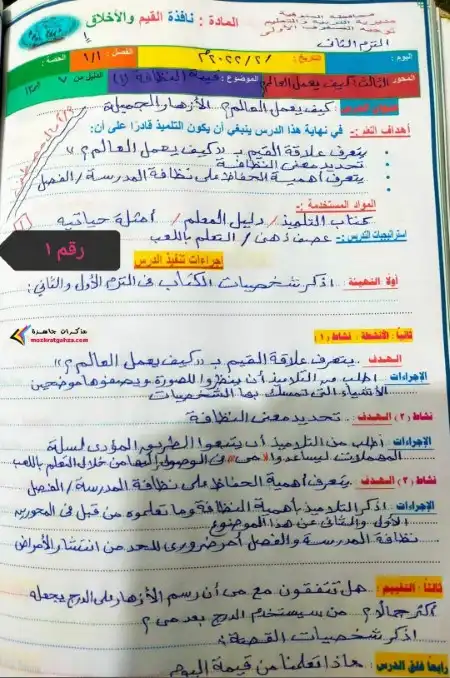 محافظة المنوفية
مديرية التربية والتعليم
توجيه الصفوف الأولى
المادة : نافذة القيم والأخلاق
الترم الثانى
اليوم : التاريخ : ٢٠٢٢/٢/ م الفصل : ١/١ الحصة :
المحور الثالث كيف يعمل العالم ؟ الموضوع : قيمة النظافة (١) الدليل من ٧
كيف يعمل العالم ؟ الأزهار الجميلة
أهداف التعلم :- في نهاية هذا الدرس ينبغي أن يكون التلميذ قادرًا على أن:
• يتعرف علاقة القيم بـ "كيف يعمل العالم ؟"
• تحديد معنى النظافة
• يتعرف أهمية الحفاظ على نظافة المدرسة / الفصل
المواد المستخدمة :-
كتاب التلميذ / دليل المعلم / أمثلة حياتية
استراتيجيات الدرس :- عصف ذهنى / التعلم باللعب
رقم ١
إجراءات تنفيذ الدرس
أولا التهيئة : اذكر شخصيات الكتاب فى الترم الأول والثانى :
مذكرات جاهزة
mozkratgahza.com
ثانيا : الأنشطة : نشاط (١)
الهدف : يتعرف علاقة القيم بـ "كيف يعمل العالم ؟"
الإجراءات : اطلب من التلاميذ أن ينظروا للصورة ويصفوها موضحين
الأشياء التى تمسك بها الشخصيات
نشاط (٢) الهدف : تحديد معنى النظافة
الإجراءات : أطلب من التلاميذ أن يتبعوا الطريق المؤدى لسلة
المهملات ليساعدوا "مى" فى الوصول إليها من خلال التعلم باللعب
نشاط (٣) الهدف : يتعرف أهمية الحفاظ على نظافة المدرسة / الفصل
الإجراءات : اذكر التلاميذ بأهمية النظافة وما تعلموه من قبل فى المحورين
الأول والثانى عن هذا الموضوع
نظافة المدرسة والفصل أمر ضرورى للحد من انتشار الأمراض
ثالثا : التقييم : هل تتفقون مع مى أن رسم الأزهار على الدرج يجعله
أكثر جمالا ؟ من سيستخدم الدرج بعد مى ؟
اذكر شخصيات القصة ؟
رابعا غلق الدرس : ماذا تعلمنا من قيمة اليوم